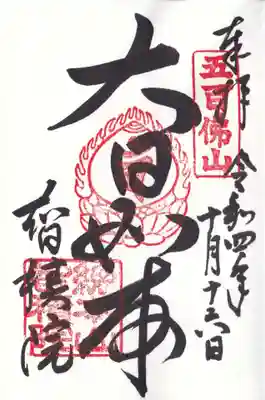 奉拝
五百佛山
令和四年
十月十六日
大日如来
智積院